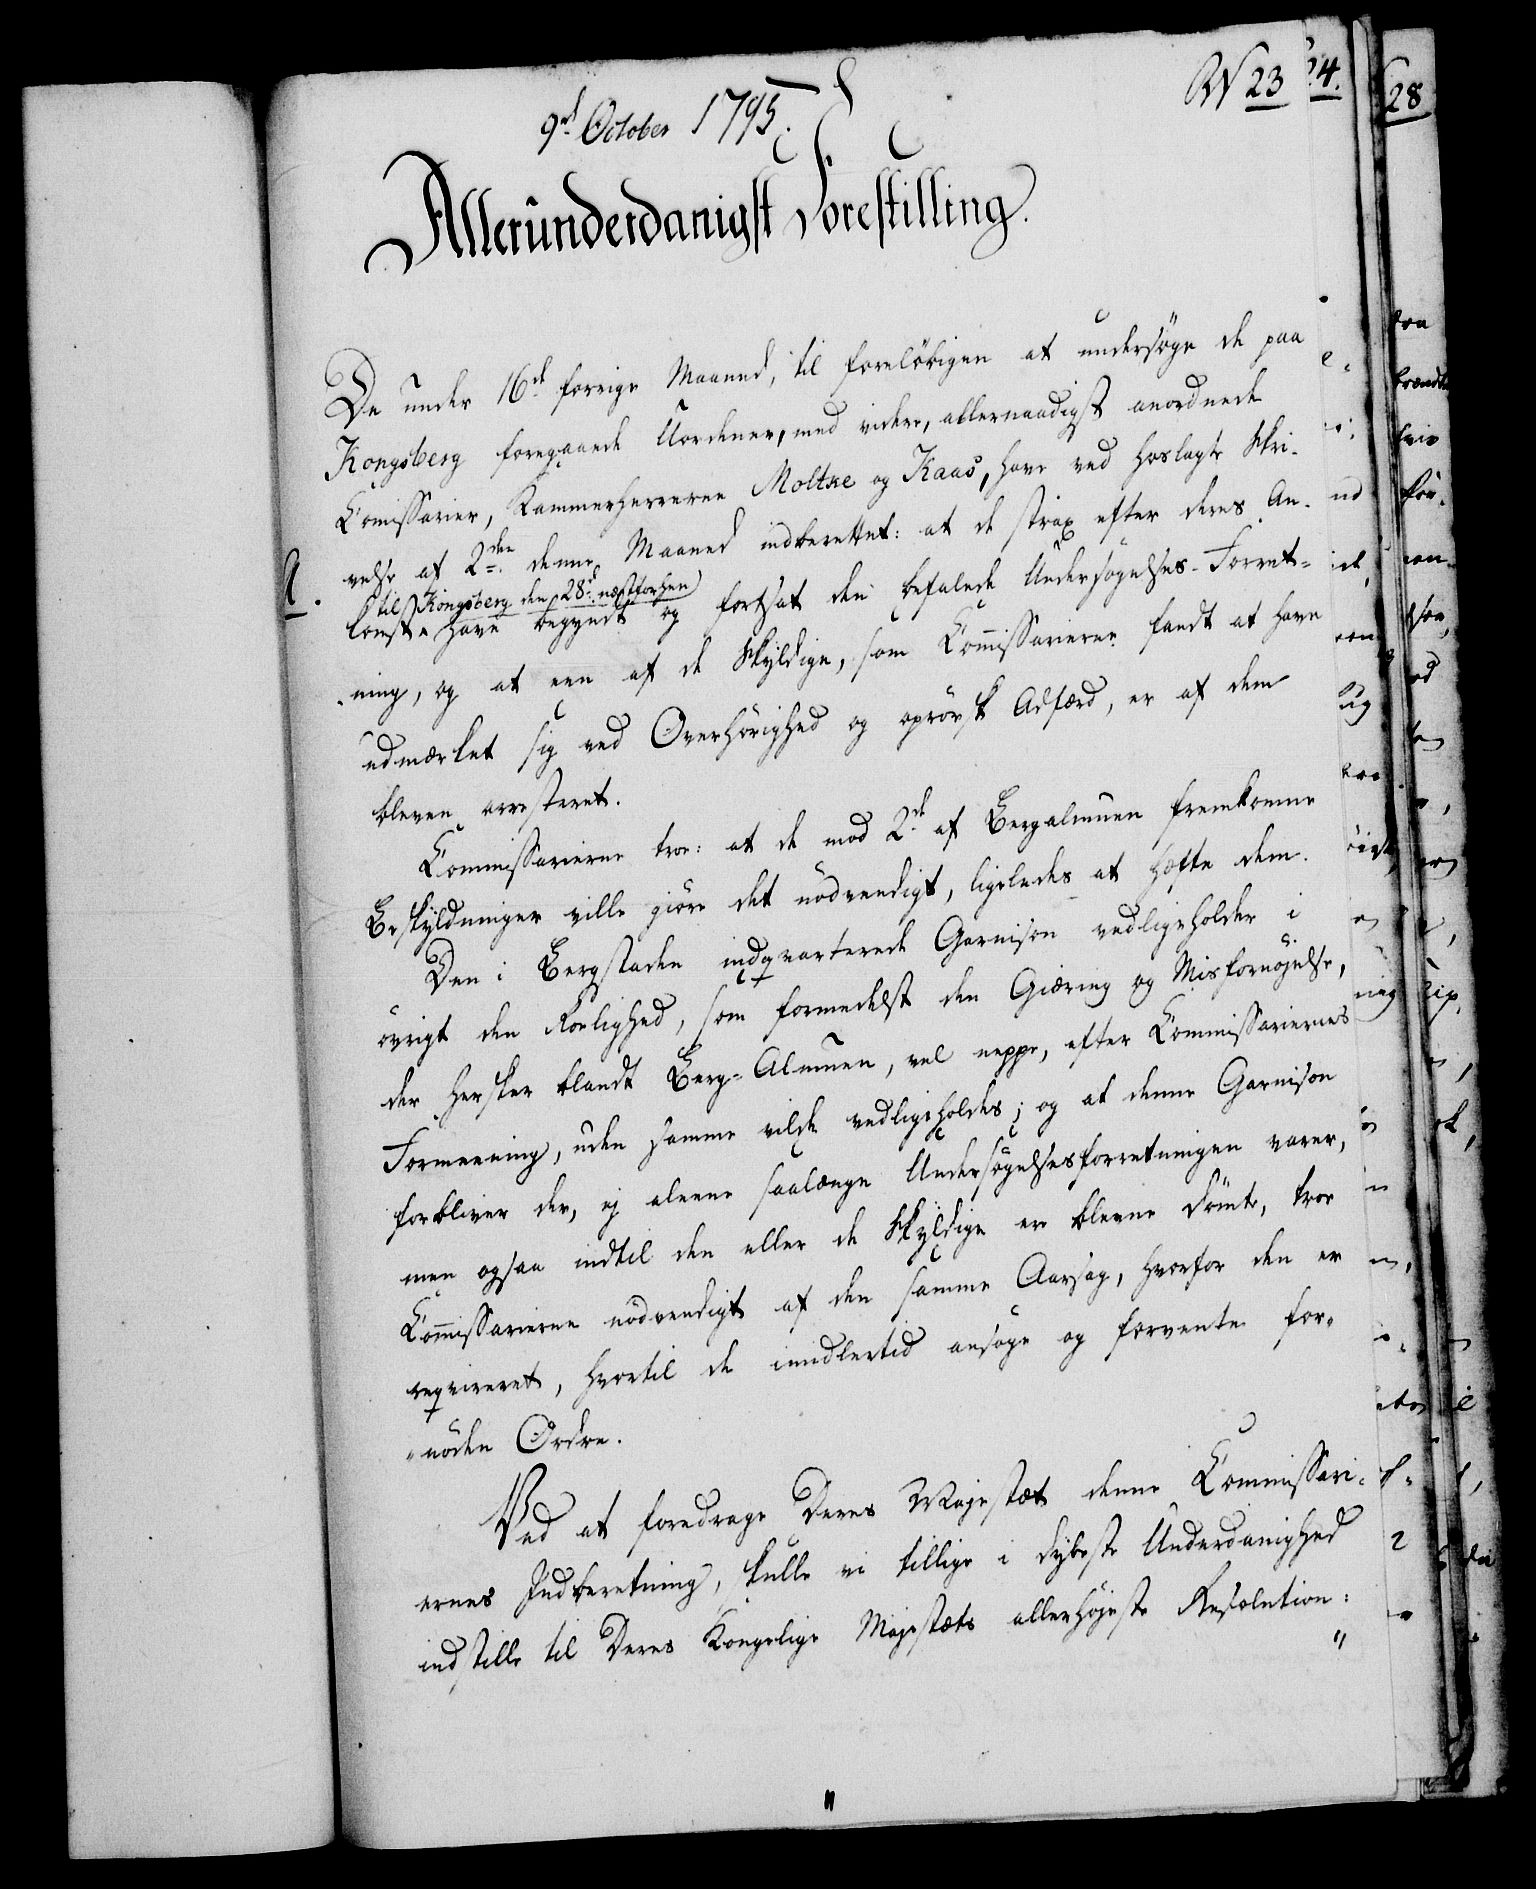 9d October 1795.
W 23
24.
28
Alleründerdanigst Forestilling.
De under 16de forrige Maaned, til forelöbigen at undersöge de paa
Kongsberg foregaaede Uordener, med videre, allernaadigst anordnede
Comissarier, Kammerherrerne Moltke og Kaas, have ved hoslagte Skri-
A.
velse af 2den denne Maaned indberettet: at de strax efter deres An-
til Kongsberg den 28de næstforhen
komst have begyndt og fortsat den befalede Undersøgelses-Forret-
ning, og at een af de Skyldige, som Comissarierne fandt at have
udmærket sig ved Overhörighed og oprörsk Adfærd, er af dem
bleven arresteret.
Commissarierne troe: at de mod 2de af Bergalmuen fremkomne
Beskyldninger ville giöre det nödvendigt, ligeledes at hæfte dem.
Den i Bergstaden indqvarterede Garnison vedligeholder i
övrigt den Rolighed, som formedelst den Giæring og Misfornöjelse,
der hersker blandt Berg-Almuen, vel neppe, efter Commissariernes
Formeening, uden samme vilde vedligeholdes; og at denne Garnison
forbliver der, ej aleene saalænge Undersøgelsesforretningen varer,
men ogsaa indtil den eller de Skyldige ere blevne dömte, troe
Comissarierne nödvendigt af den samme Aarsag, hvorfor den er
reqvireret, hvortil de imidlertid ansöge og forvente for-
nöden Ordre.
Ved at foredrage Deres Majestæt denne Commissari-
ernes Indberetning, skulle vi tillige i dybeste Underdanighed
indstille til Deres Kongelige Majestæts allerhöjeste Resolution: